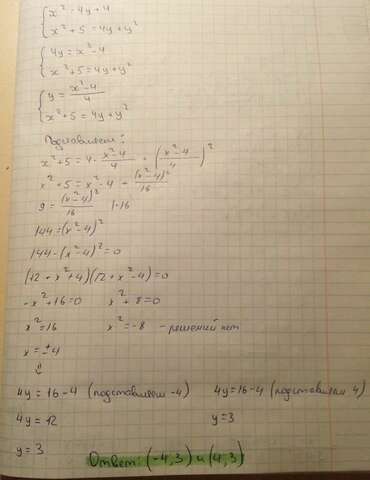 x² - 4y + 4
x² + 5 = 4y + y²
4y = x² - 4
x² + 5 = 4y + y²
y = (x² - 4)/4
x² + 5 = 4y + y²
Подставляем:
x² + 5 = 4 · (x² - 4)/4 + ((x² - 4)/4)²
x² + 5 = x² - 4 + (x² - 4)²/16
9 = (x² - 4)²/16 | · 16
144 = (x² - 4)²
144 - (x² - 4)² = 0
(12 - x² + 4)(12 + x² - 4) = 0
-x² + 16 = 0 x² + 8 = 0
x² = 16 x² = -8 - решений нет
x = ±4
4y = 16 - 4 (подставляем -4) 4y = 16 - 4 (подставляем 4)
4y = 12 y = 3
y = 3 Ответ: (-4, 3) и (4, 3)